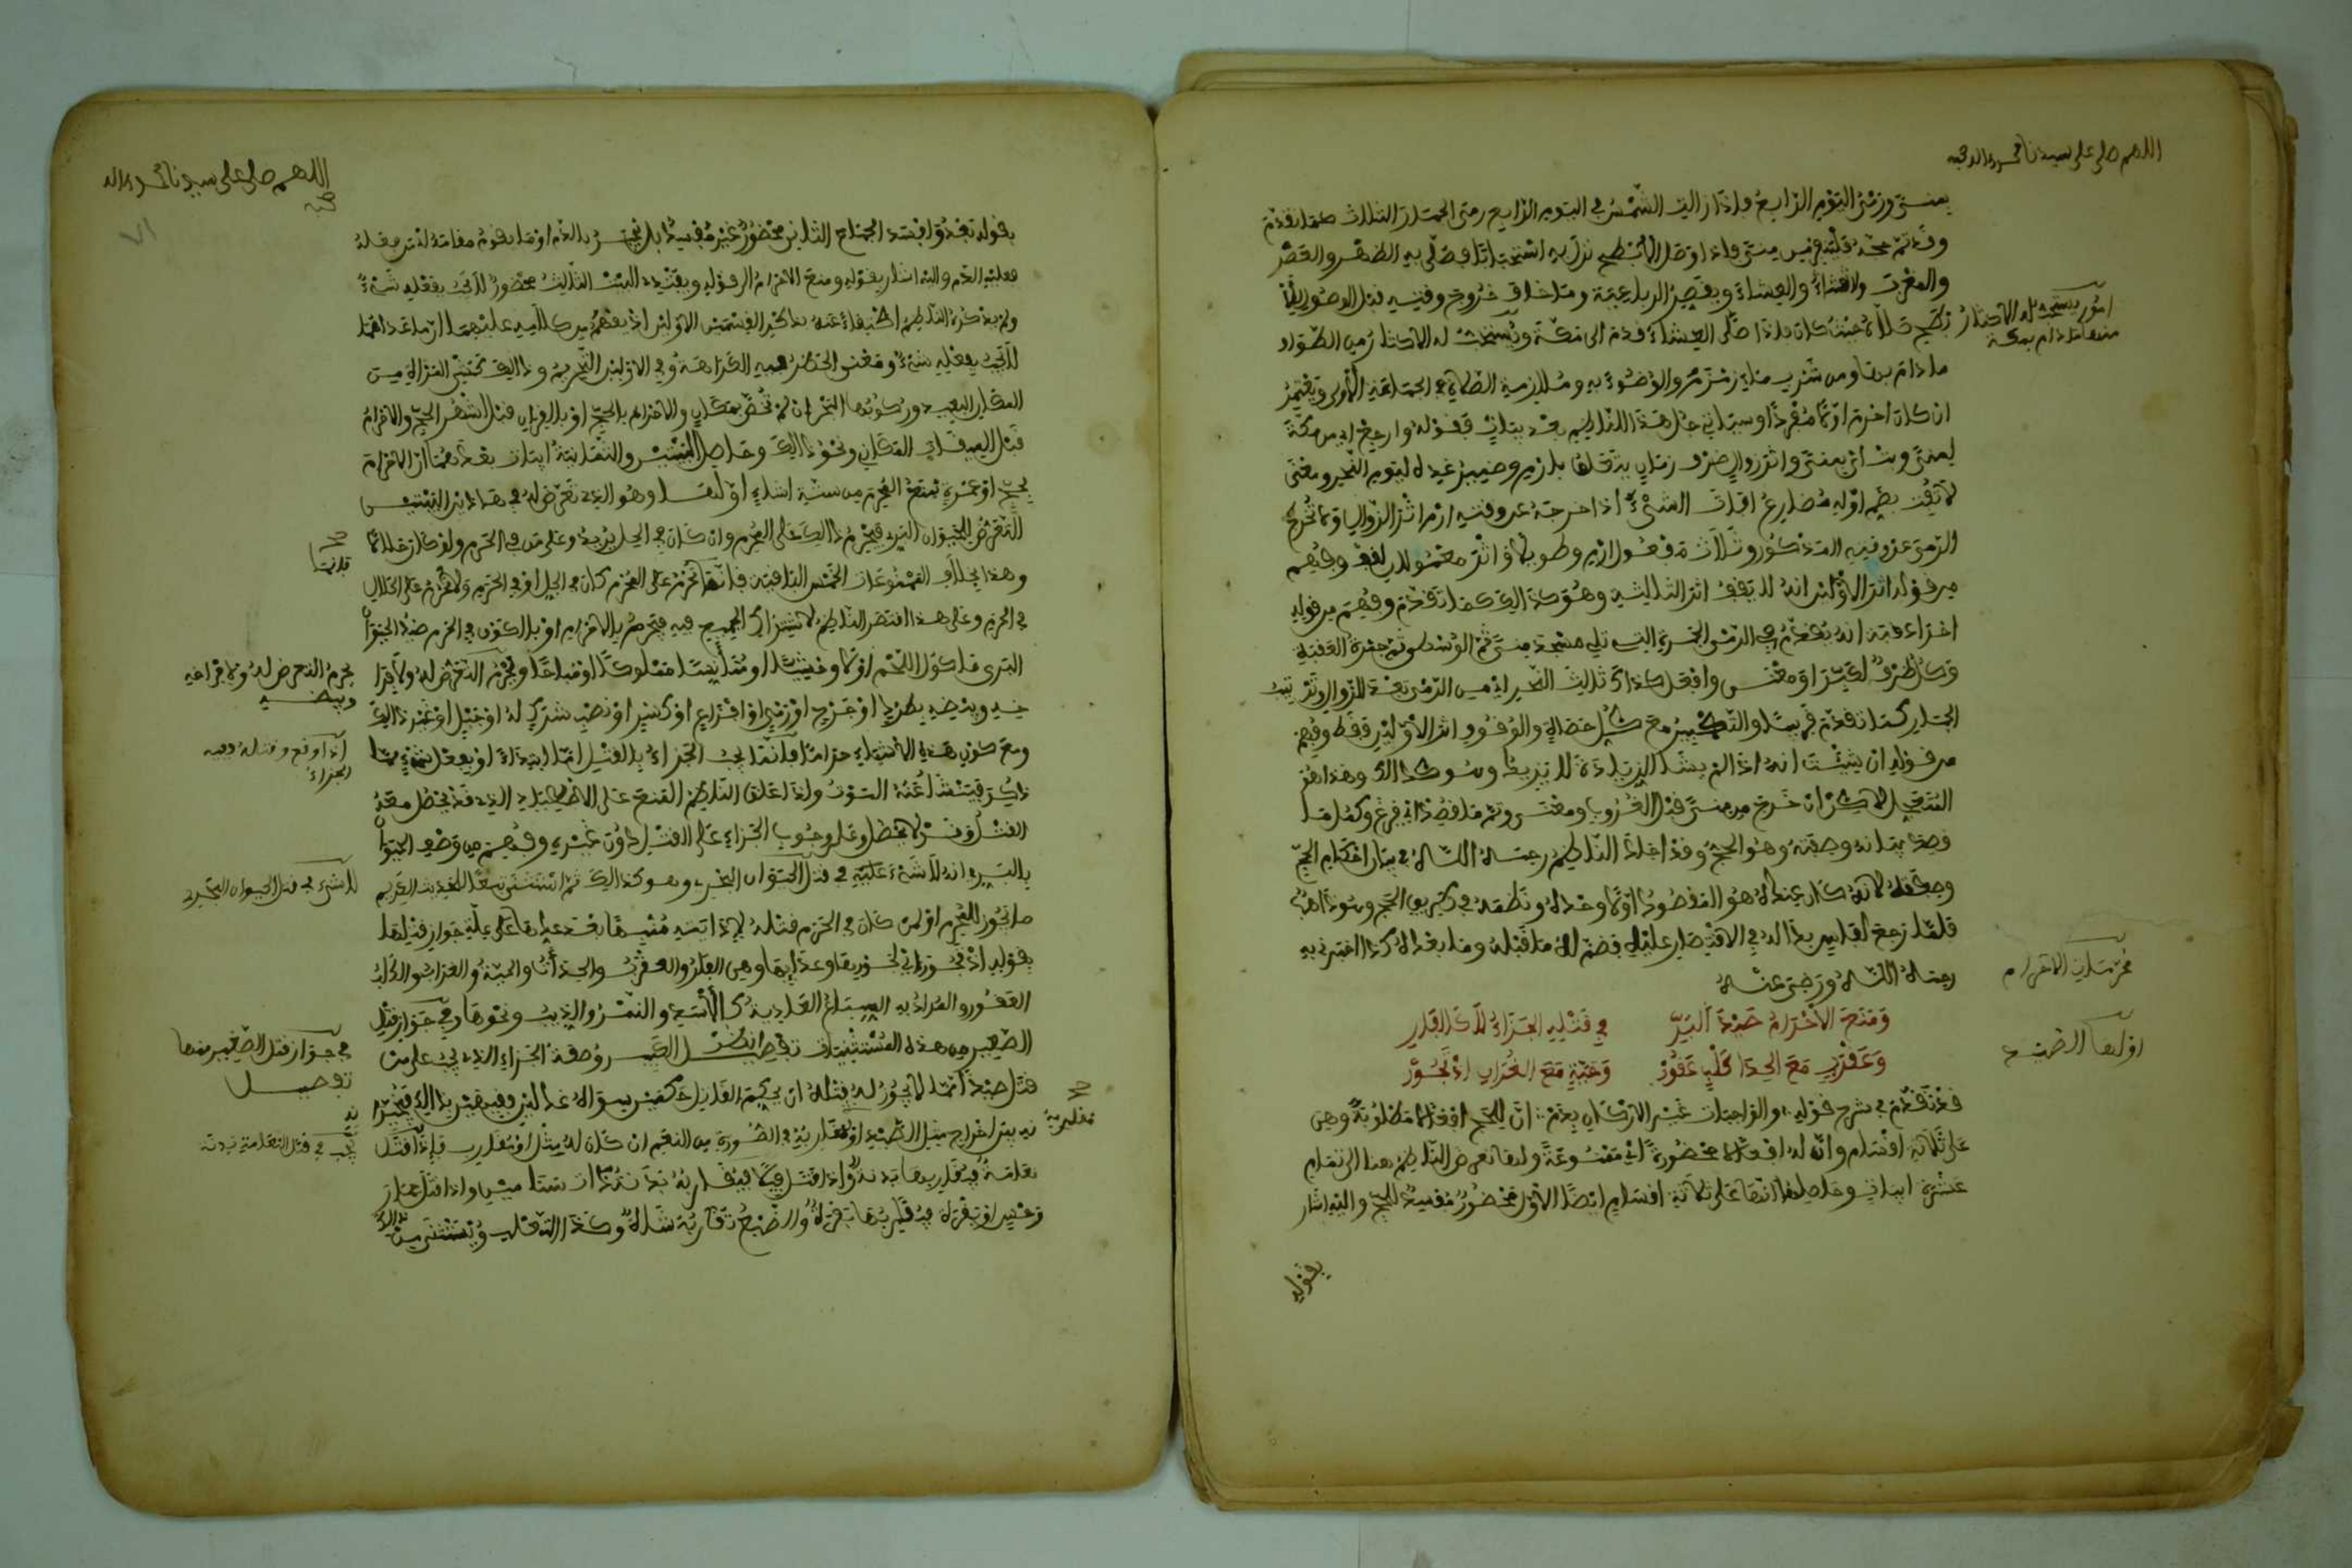 اللهم صل على سيدنا محمد واله وصحبه
بمنى ورمى اليوم الرابع فاذا زالت الشمس في اليوم الرابع رمى الجمار الثلاث كما تقدم
وقد تم حجه فلينفر من منى فاذا وصل الابطح نزل به استحبابا فصلى به الظهر والعصر
والمغرب والعشاء ويقصر الرباعية وما خاف خروج وقته قبل الوصول الى الا
بطح صلاه حيث كان فاذا صلى العشاء قدم الى مكة ويستحب له الاكثار من الطواف
ما دام بها ومن شرب ماء زمزم والوضوء به وملازمة الصلاة في الجماعة الاولى ويعتمر
ان كان احرم اولا مفردا وسياتي حل هذا الناظم بعد بيان فقوله وارجع اي من مكة
لمنى وبت اي بمنى واثر زوال ظرف زمان يتعلق بارم وضمير غده ليوم النحر ومعنى
لا تفت بضم اوله مضارع افات الشيء اذا اخرجه عن وقته ارم اثر الزوال ولا تخرج
الرمي عن وقته المذكور وثلاث مفعول ارم
من قوله اثر الاولين انه لا يقف اثر الثالثة وهو كذلك كما تقدم وفهم من قوله
اخرا عقبة انه يقدم في الرمي الجمرة التي تلي مسجد منى ثم الوسطى ثم جمرة العقبة
وافعل كذاك ثالث النحر اي من الرمي بعد الزوال وترتيب
الجمار كما تقدم قريبا والتكبير مع كل حصاة والوقوف اثر الاولين فقط وفهم
من قوله ان شئت انه اذا لم يشا الزيادة لا يزيد وهو كذلك وهذا هو
المتعجل لاكن ان خرج من منى قبل الغروب ومعنى وتم ما قصد اي فرغ وكمل ما
قصد بيانه وصفته وهو الحج وقد اجاد الناظم رحمه الله في بيان احكام الحج
وصفته لانه كان عنده هو المقصود اولا وحده ونظمه في طريق الحج
فلما رجع لفاس بدا له في الاقتصار عليه فضم له ما قبله وما بعده كذا اخبرني به
رحمه الله ورضي عنه
ومنع الاحرام صيد البر في قتله الجزاء لا كالفار
وعقرب مع الحدا كلب عقور وحية مع الغراب اذ يجور
قد تقدم في شرح قوله والواجبات غير الاركان بدم ان للحج افعالا مطلوبة وهي
على ثلاثة اقسام وان له افعالا محظورة اي ممنوعة ولها تعرض الناظم هنا الى تمام
عشرة ابيات وحاصلها انها على ثلاثة اقسام ايضا الاول محظور مفسد للحج واليه اشار
بقوله
امور يستحب له الاكثار منها ما دام بمكة
محرمات الاحرام
اولها الصيد
اللهم صل على سيدنا محمد واله وصحبه
٧١
بقوله بعد وافسد الجماع الثاني محظور غير مفسد بل ينجبر بالدم او ما يقوم مقامه لمن فعله
فعليه الدم واليه اشار بقوله ومنع الاحرام الى قوله الثالث محظور لا يجب بفعله شيء
ولم يذكره الناظم اكتفاء عنه بذكر القسمين الاولين اذ يفهم من كلامه عليهما ان ما عداهما
لا يجب بفعله شيء ومعنى الحظر فيه الكراهة وفي الاولين التحريم وذلك كتنحي المراة من
المكان البعيد وركوبها البحر ان لم تخص بمكان والاحرام بالحج او بالقران قبل اشهر الحج والاحرام
قبل الميقات المكاني ونحو ذلك وحاصل البيتين والثمانية ابيات بعدهما ان الاحرام
بحج او عمرة يمنع المحرم من ستة اشياء اولها وهو الذي تعرض له في هاذين البيتين
التعرض للحيوان البري فيحرم ذلك على المحرم وان كان في الحل يريد وعلى من في الحرم ولو كان حلالا
وهذا بخلاف الممنوعات الخمس الباقية فانها تحرم على المحرم كان في الحل او في الحرم ولا تحرم على الحلال
في الحرم وعلى هذا اقتصر الناظم لاشتراك الجميع فيه فيحرم بالاحرام او بالكون في الحرم صيد الحيوان
البري ماكول اللحم اولا وحشيا او متانسا مملوكا او مباحا ويحرم التعرض له ولافرا
خه وبيضه بطرد او جرح او رمي او افزاع او كسر او نصب شرك له او حبل او غير ذلك
ومع كون هذه الاشياء حراما فانما يجب الجزاء بالقتل اما ابتداء او بفعل شيء مما
ذكر فينشا عنه الموت ولذا علق الناظم المنع على الاصطياد الذي قد يحصل معه
القتل وقد لا يحصل وعلى وجوب الجزاء على القتل دون غيره وفهم من وصف الحيوان
بالبري انه لا شيء عليه في قتل الحيوان البحري وهو كذلك ثم استثنى تبعا للحديث الكريم
ما يجوز للمحرم او لمن كان في الحرم قتله لاذايته منبها بعد عدها على علة جواز قتلها
بقوله اذ يجور اي لجورها وعدائها وهي الفار والعقرب والحداة والحية والغراب والكلب
العقور والمراد به السباع العادية كالاسد والنمر والذيب ونحوها وفي جواز قتل
الصغير من هذه المستثنيات تفصيل انظر الكبير وصفة الجزاء الذي يجب على من
قتل صيدا مما لا يجوز له قتله ان يحكم القاتل حكمين سواه عدلين فقيهين بذلك فيخيرا
نه بين اخراج مثل الصيد او مقاربه في الصورة من النعم ان كان له مثل او مقارب فاذا قتل
نعامة فيقاربها بدنة واذا قتل فيلا فيقاربه بدنة ذات سنامين واذا قتل حمار
وحش او بقرة فيقاربها بقرة والضبع تقاربه شاة وكذا الثعلب ويستثنى من ذلك
قلانيا
يحرم التعرض له ولافراخه وبيضه
اذا وقع وقتله ففيه الجزاء
لا شيء في قتل الحيوان البحري
في جواز قتل الصغير منها تفصيل
يجب في قتل النعامة بدنة